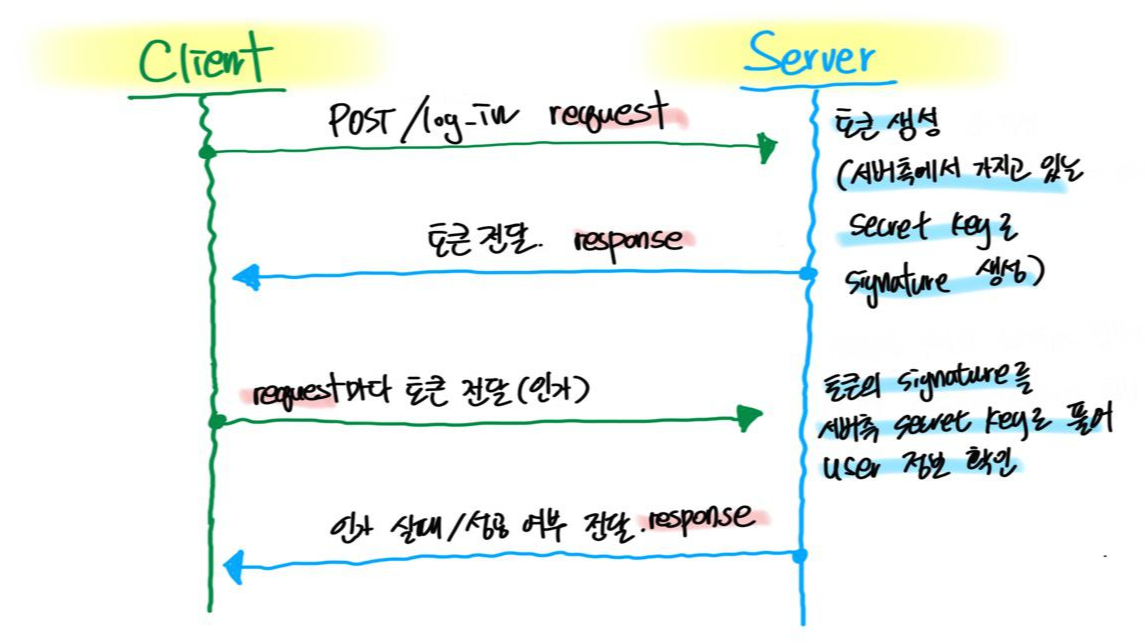 Client
Server
POST /log-in request
토큰 생성
(서버측에서 가지고 있는
secret key로
signature 생성)
토큰 전달. response
request마다 토큰 전달(인가)
토큰의 signature를
서버측 secret key로 풀어
user 정보 확인
인가 실패/성공 여부 전달.response